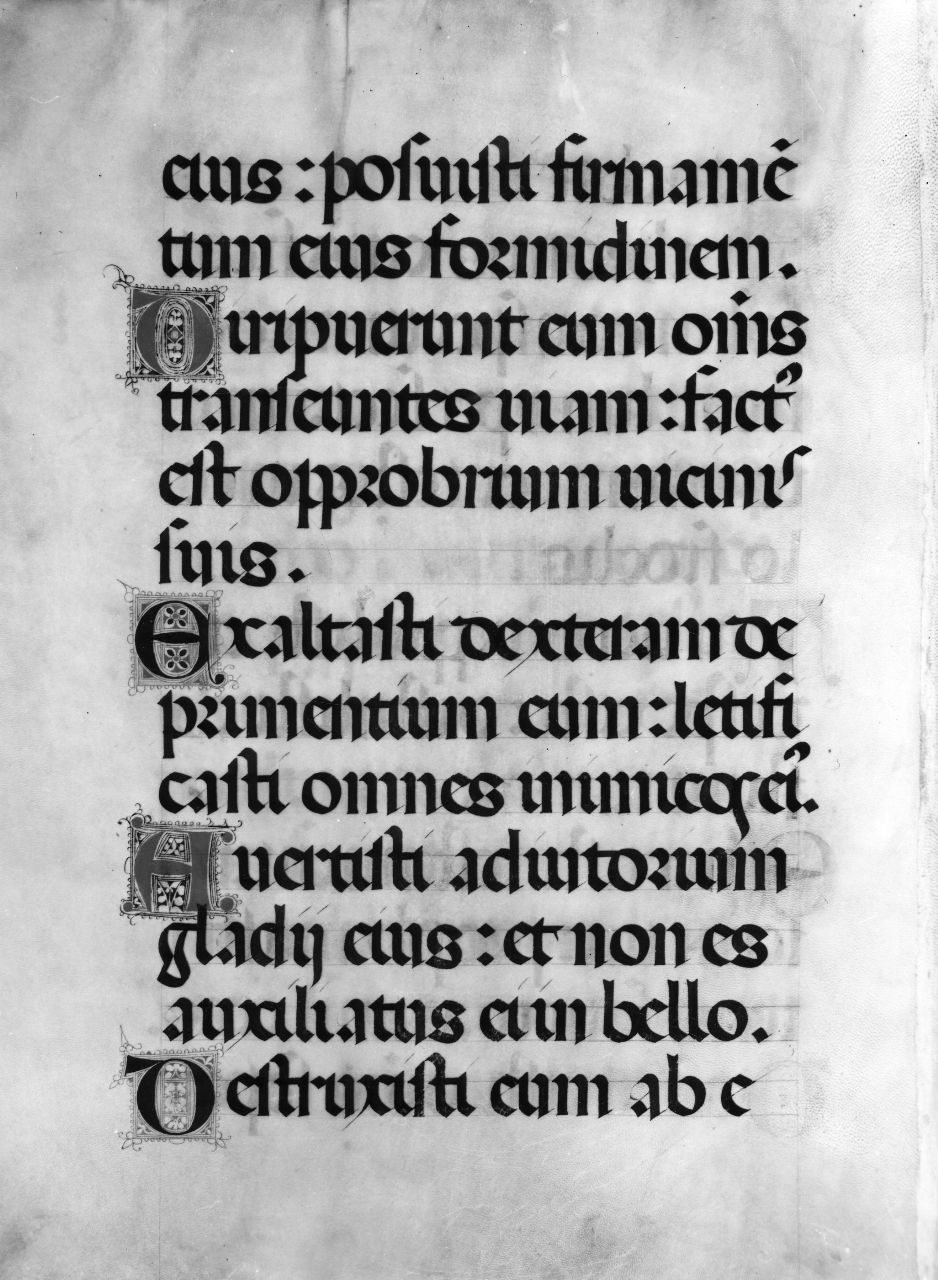 eius : posuisti firmamē
tum eius formidinem .
Diripuerunt eum om̄s
transeuntes uiam : factꝰ
est opprobrium uicinis
suis .
Exaltasti dexteram de
primentium eum : letifi
casti omnes inimicoꝝ eiꝰ .
Auertisti adiutorium
gladij eius : et non es
auxiliatus ei in bello .
Destruxisti eum ab e